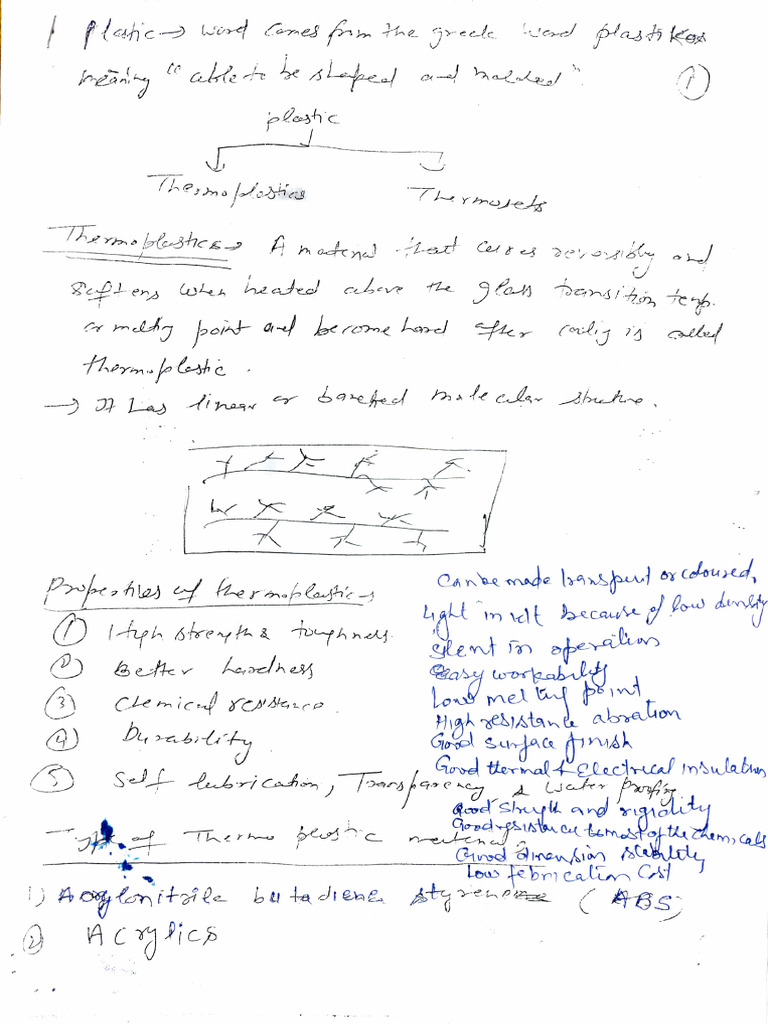 1 Plastic → word comes from the greek word plastikos
meaning "able to be shaped and molded".
①
plastic
Thermoplastics
Thermosets
Thermoplastics → A material that cures reversibly and
softens when heated above the glass transition temp.
or melting point and become hard after cooling is called
thermoplastic.
→ It has linear or molecular structure.
Properties of thermoplastic →
① High strength & toughness.
② Better hardness
③ Chemical resistance.
④ Durability.
⑤ Self lubrication, Transparency & water proofing
Can be made transparent or coloured,
Light in wt because of low density
Silent in operation
Easy workability
Low melting point
High resistance abration
Good surface finish
Good thermal & Electrical insulation
Good strength and rigidity
Good resistance to most of the chemicals
Good dimension stability
Low febrication cost
of Thermo plastic material
1) Acrylonitrile butadiene styrene (ABS)
② Acrylics